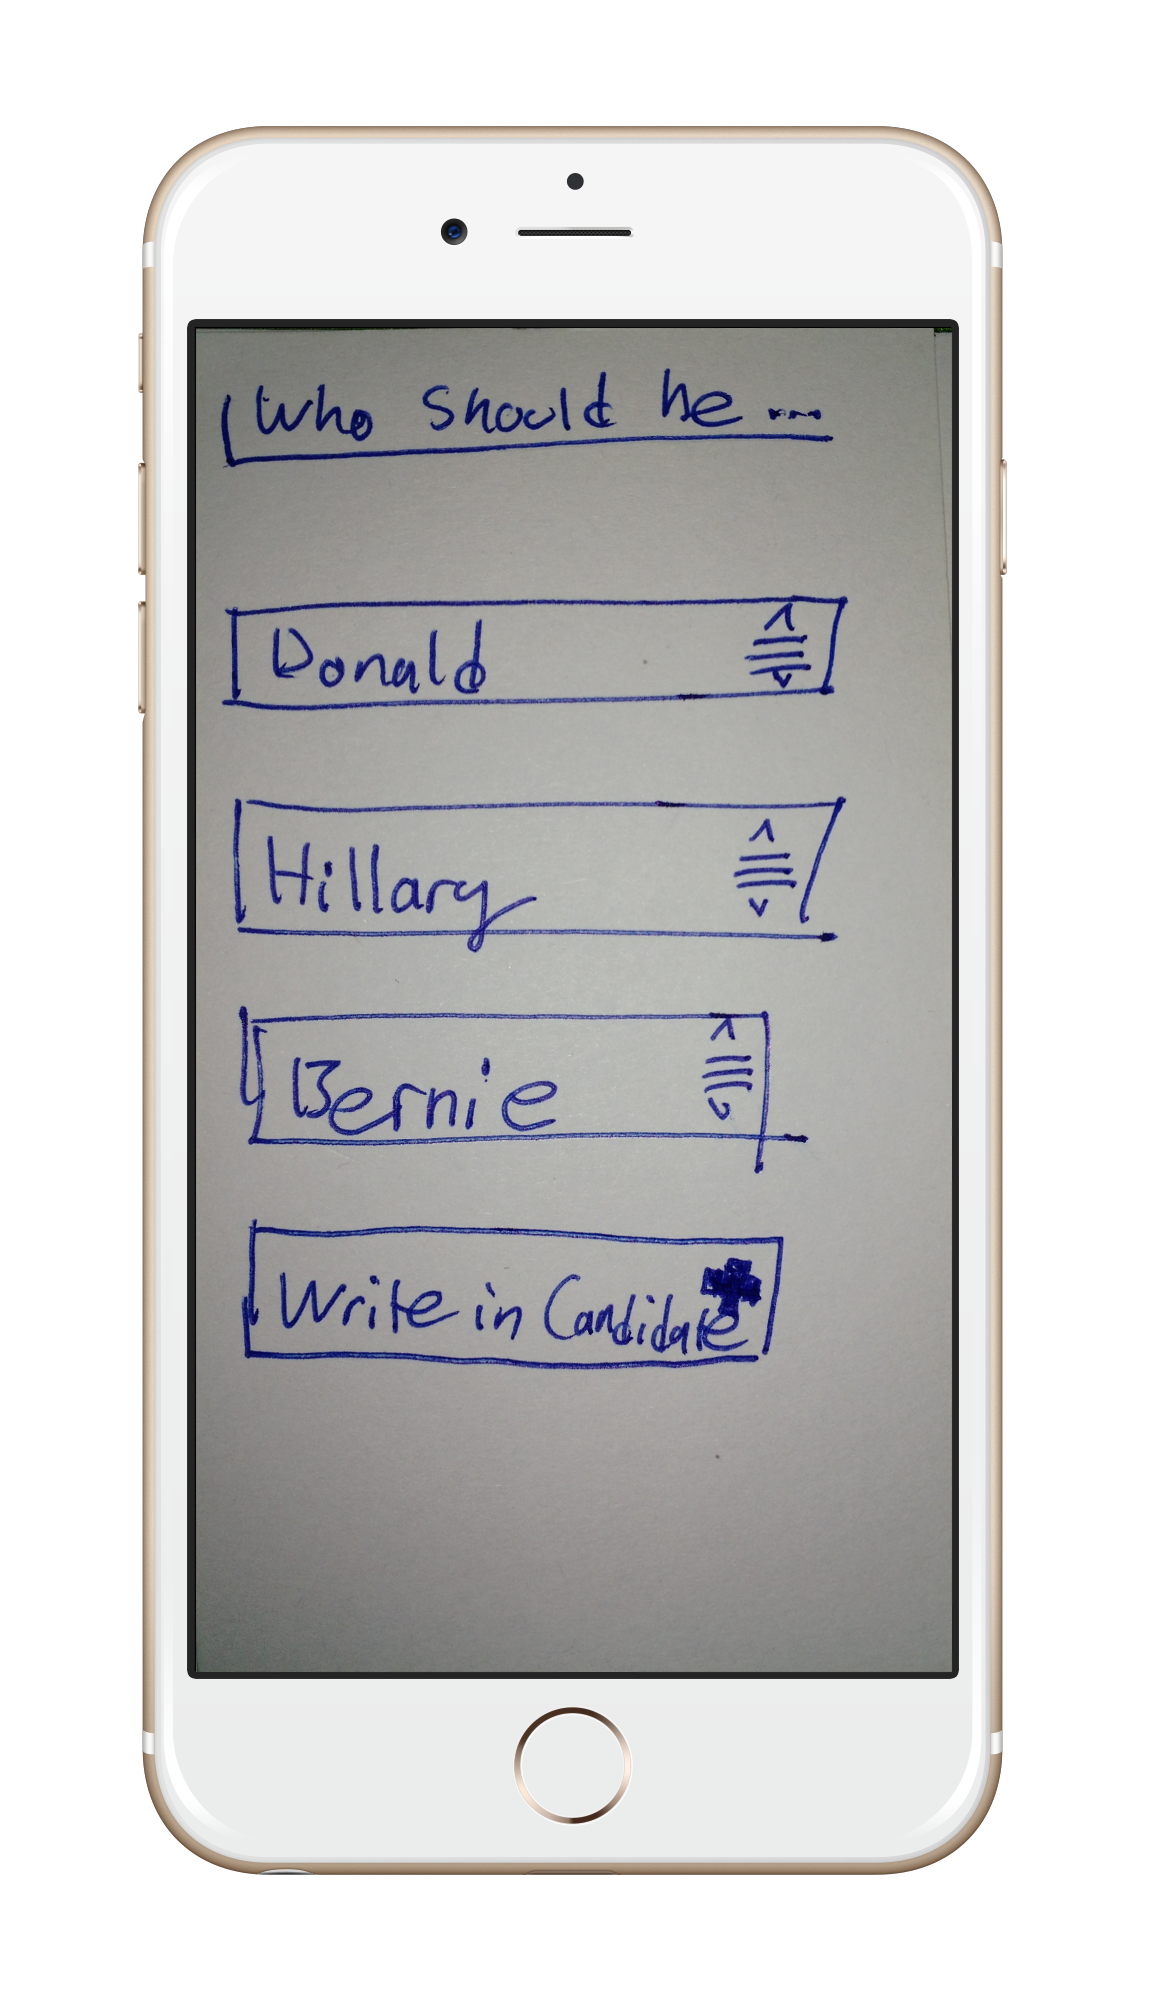 Who should he ....
Donald
Hillary
Bernie
Write in Candidate